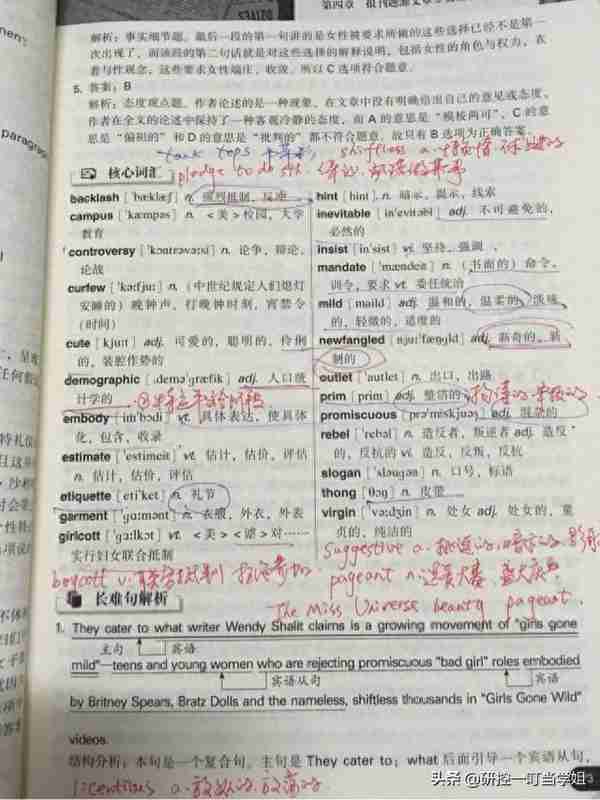 第四章 报刊题源文章
解析：事实细节题。最后一段的第一句讲的是女性被要求所做的这些选择已经不是第一
次出现了，而该段的第二句话就是对这些选择的解释说明，包括女性的角色与权力，衣
着与性观念，这些要求女性端庄、收敛。所以C选项符合题意。
5. 答案：B
解析：态度观点题。作者论述的是一种现象，在文章中没有明确给出自己的意见或态度。
作者在全文的论述中保持了一种客观冷静的态度，而A的意思是“模棱两可”，C的意
思是“偏袒的”和D的意思是“批判的”都不符合题意，故只有B选项为正确答案。
tank tops
shiftless a.
pledge to do sth.
核心词汇
backlash [ˈbæklæʃ] n. 强烈抵制，反冲
campus [ˈkæmpəs] n. <美>校园，大学
教育
controversy [ˈkɔntrəvəːsi] n. 论争，辩论，
论战
curfew [ˈkəːfjuː] n. （中世纪规定人们熄灯
安睡的）晚钟声，打晚钟时刻，宵禁令
（时间）
cute [kjuːt] adj. 可爱的，聪明的，伶俐
的，装腔作势的
demographic [ˌdeməˈɡræfik] adj. 人口统
计学的
embody [imˈbɔdi] vt. 具体表达，使具体
化，包含，收录
estimate [ˈestimeit] vt. 估计，估价，评估
n. 估计，估价，评估
etiquette [etiˈket] n. 礼节
garment [ˈɡɑːmənt] n. 衣服，外衣，外表
girlcott [ˈɡəːlkɔt] vt. <美><谑>对……
实行妇女联合抵制
hint [hint] n. 暗示，提示，线索
inevitable [inˈevitəbl] adj. 不可避免的，
必然的
insist [inˈsist] vt. 坚持，强调
mandate [ˈmændeit] n. （书面的）命令，
训令，要求 vt. 委任统治
mild [maild] adj. 温和的，温柔的，淡味
的，轻微的，适度的
newfangled [njuːˈfæŋɡld] adj. 新奇的，新
制的
outlet [ˈautlet] n. 出口，出路
prim [prim] adj. 整洁的
promiscuous [prəˈmiskjuəs] adj. 混杂的
rebel [ˈrebəl] n. 造反者，叛逆者 adj. 造反
的，反抗的 vi. 造反，反叛，反抗
slogan [ˈsləuɡən] n. 口号，标语
thong [θɔŋ] n. 皮带
virgin [ˈvəːdʒin] n. 处女 adj. 处女的，童
贞的，纯洁的
suggestive a. 挑逗的，暗示的
boycott v. 联合抵制
pageant n. 选美大赛，盛大庆典
The Miss Universe beauty pageant.
长难句解析
1. They cater to what writer Wendy Shalit claims is a growing movement of "girls gone
主句 宾语
mild"—teens and young women who are rejecting promiscuous "bad girl" roles embodied
宾语从句 宾语
by Britney Spears, Bratz Dolls and the nameless, shiftless thousands in "Girls Gone Wild"
videos.
结构分析：本句是一个复合句。主句是 They cater to；what 后面引导一个宾语从句，
licentious a. 放纵的，放荡的
头条 @研控一叮当学姐